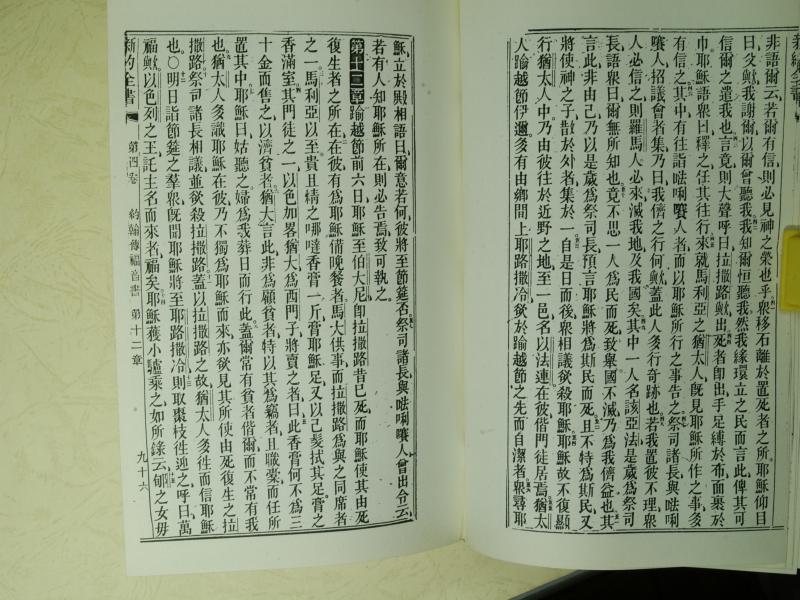 新約全書
非語爾云若爾有信則必見神之榮也乎衆移石離於置死者之所耶穌仰目
曰父歟我謝爾以爾曾聽我我知爾恒聽我然我緣環立之民而言此俾其可
信爾之遣我也言竟則大聲呼曰拉撒路歟出死者卽出手足縛於布面裹於
巾耶穌語衆曰釋之任其往行來就馬利亞之猶太人旣見耶穌所作之事多
有信之其中有往詣㕸唎㘔人者而以耶穌所行之事告之祭司諸長與㕸唎
㘔人招議會者集乃曰我儕之行何歟蓋此人多行奇跡也若我置彼不理衆
人必信之則羅馬人必來滅我地及我國矣其中一人名該亞法是歲爲祭司
長語衆曰爾無所知也竟不思一人爲民而死致舉國不滅乃爲我儕益也其
言此非由己乃以是歲爲祭司長預言耶穌將爲斯民而死且不特爲斯民又
將使神之子散於外者集於一自是日而後衆相議欲殺耶穌耶穌故不復顯
行猶太人中乃由彼往於近野之地至一邑名以法連在彼偕門徒居焉猶太
人踰越節伊邇多有由鄉間上耶路撒冷欲於踰越節之先而自潔者衆尋耶
穌立於殿相語曰爾意若何彼將至節筵否祭司諸長與㕸唎㘔人曾出令云
若有人知耶穌所在則必告焉致可執之
第十二章踰越節前六日耶穌至伯大尼卽拉撒路昔已死而耶穌使其由死
復生者之所在在彼有爲耶穌備晚餐者馬大供事而拉撒路爲與之同席者
之一馬利亞以至貴且精之哪噠香膏一斤膏耶穌足又以己髮拭其足膏之
香滿室其門徒之一以色加畧猶大爲西門子將賣之者曰此香膏何不爲三
十金而售之以濟貧者猶大言此非爲顧貧者特以其爲竊者且職橐而任所
置其中耶穌曰姑聽之婦爲我葬日而行此蓋爾常有貧者偕爾而不常有我
也猶太人多識耶穌在彼乃不獨爲耶穌而來亦欲見其所使由死復生之拉
撒路祭司諸長相議並欲殺拉撒路蓋以拉撒路之故猶太人多往而信耶穌
也〇明日詣節筵之羣衆旣聞耶穌將至耶路撒冷則取棗枝往迎之呼曰萬
福歟以色列之王託主名而來者福矣耶穌獲小驢乘之如所錄云郇之女毋
新約全書 第四卷 約翰傳福音書 第十二章 九十六